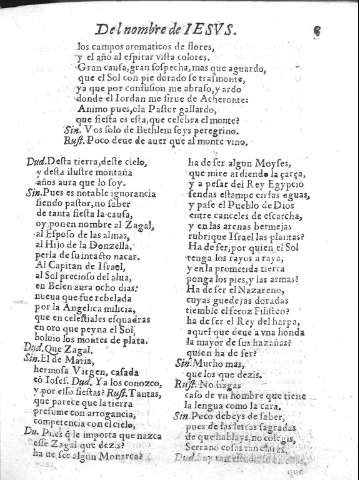 Del nombre de IESVS.
los campos aromaticos de flores,
y el año al espirar vista colores.
Gran causa, gran sospecha, mas que aguardo,
que el Sol con pie dorado se trasmonte,
ya que por confusion me abraso, y ardo
donde el Iordan me sirue de Acheronte:
Animo pues, ola Pastor gallardo,
que fiesta es esta, que celebra el monte?
Sin. Vos solo de Bethlem soys peregrino.
Rust. Poco deue de auer que al monte vino.
Dud. Desta tierra, deste cielo,
y desta ilustre montaña
años aura que lo soy.
Sin. Pues es notable ignorancia
siendo pastor, no saber
de tanta fiesta la causa,
oy ponen nombre al Zagal,
al Esposo de las almas,
al Hijo de la Donzella,
perla de su intacto nacar.
Al Capitan de Israel,
al Sol precioso del alua,
en Belen aura ocho dias:
nueua que fue rebelada
por la Angelica milicia,
que en celestiales esquadras
en oro que peyna el Sol
boluio los montes de plata.
Dud. Que Zagal.
Sin. El de Maria,
hermosa Virgen, casada
cō Iosef. Dud. Ya los conozco,
y por esso fiestas? Rust. Tantas,
que parece que la tierra
presume con arrogancia,
competencia con el cielo,
Du. Pues q̃ le importa que nazca
esse Zagal que dezis?
ha de ser algun Monarca?
ha de ser algun Moyses,
que mire ardiendo la çarça,
y a pesar del Rey Egypcio
sendas estampe en las aguas,
y passe el Pueblo de Dios
entre canceles de escarcha,
y en las arenas bermejas
rubrique Israel las plantas?
Ha de ser, por quien el Sol
tenga los rayos a raya,
y en la prometida tierra
ponga los pies, y las armas?
Ha de ser el Nazareno,
cuyas guedejas doradas
tiemble el feroz Filisteo?
ha de ser el Rey del harpa,
aquel que deue a vna honda
la mayor de sus hazañas?
quien ha de ser?
Sin. Mucho mas,
que los que dezis.
Rust. No hagas
caso de vn hombre que tiene
la lengua como la cara.
Sin. Poco deueys de saber,
pues de las letras sagradas
de que hablays, no colegis,
Serrano cosas tan claras.
Dud. Soy tan
que